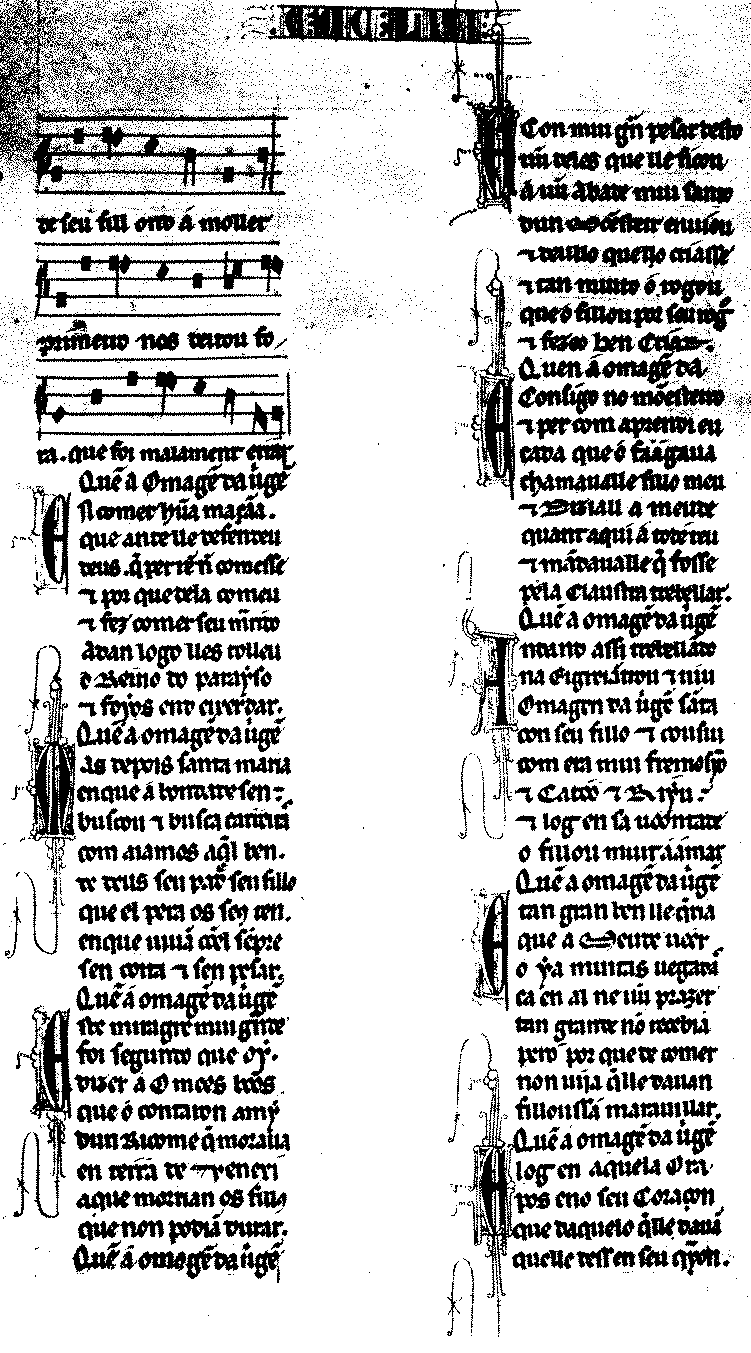 de seu fill ond' a moller
primeiro nos deitou fo
ra. que foi malament errar
Quē a Omagē da uirgē
E
st comer hũa maçãa.
que ante lle defendeu
deus. q̄ per rē nō comesse
⁊ por que dela comeu
⁊ fez comer seu marido
Adan logo lles tolleu
o Reino do parayso
⁊ foyos end' eixerdar.
Quē a omagē da uirgē
M
as depois santa maria
en que á bondade sen
buscou ⁊ busca carreira
com aiamos aq̄l ben.
de deus seu padre seu fillo
que el pera os seus ten.
en que uiuā cō el sēpre
sen coita ⁊ sen pesar.
Quē a omagē da uirgē
E
ste miragre mui grāde
foi segundo que oy.
dizer a Omēes bōos
que o contaron a my
dun Ricome q̄ moraua
en terra de
a que morrian os fillos
que non podiā durar.
Quē a omagē da uirgē
E
Con mui grā pesar desto
un deles que lle ficou
a un Abade mui santo
dun mōesteir enuiou
⁊ deullo que llo criasse
⁊ tan muito o rogou
que o fillou per seu rogo
⁊ fezeo ben Criar.
Quen a omagē da
E
Consigo no mōesteiro
⁊ per com aprendi eu
cada que o faagaua
chamaualle fillo meu
⁊ a meude
quant' aqui a tod' e teu
⁊ mādaualle q̄ fosse
pela Claustra trebellar.
Quē a omagē da uirgē
A
ndand' assi trebellādo
na Eigreia entrou ⁊ uiu
Omagen da uirgē sāta
con seu fillo ⁊ consiu
com era mui fremoso
⁊ Catoo ⁊
⁊ log' en sa uoontade
o fillou muit' a amar
Quē a omagē da uirgē
E
tan gran ben lle q̄ria
que a ueer
o ya muitas uegadas
ca en al neun prazer
tan grande nō recebia
pero por que de comer
non uija q̄ lle dauan
fillouss' a marauillar.
Quē a omagē da uirgē
E
log' en aquela Ora
pos eno seu Coraçon
que daquelo q̄ lle dauā
que lle dess' en seu quinon.